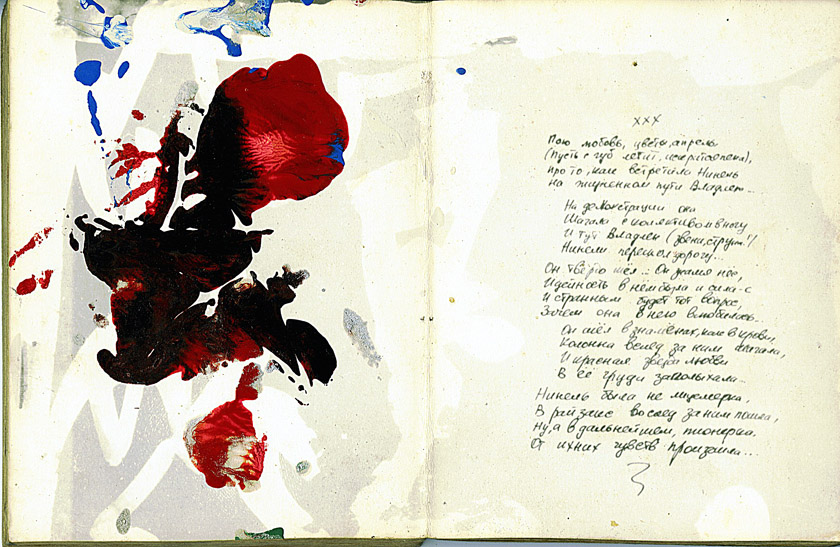 ххх
Пою любовь, цветы, апрель
(Пусть с губ летит, искрится пена),
про то, как встретила Нинель
на жизненном пути Владлена...
На демонстрации она
Шагала с коллективом в ногу
И тут Владлен (звени, струна!)
Нинели перешёл дорогу...
Он твёрдо шёл... Он жалил нее,
Идейность в нём была и сила-с
И странным будет тот вопрос,
Зачем она в него влюбилась...
Он шёл в знаменах, как в крови,
Колонна вслед за ним шагала,
И красная звезда любви
В её груди заполыхала...
Нинель была не лицемерка,
В райзагс восслед за ним пошла,
Ну, а в дальнейшем, пионерка
От ихних чувств произошла...